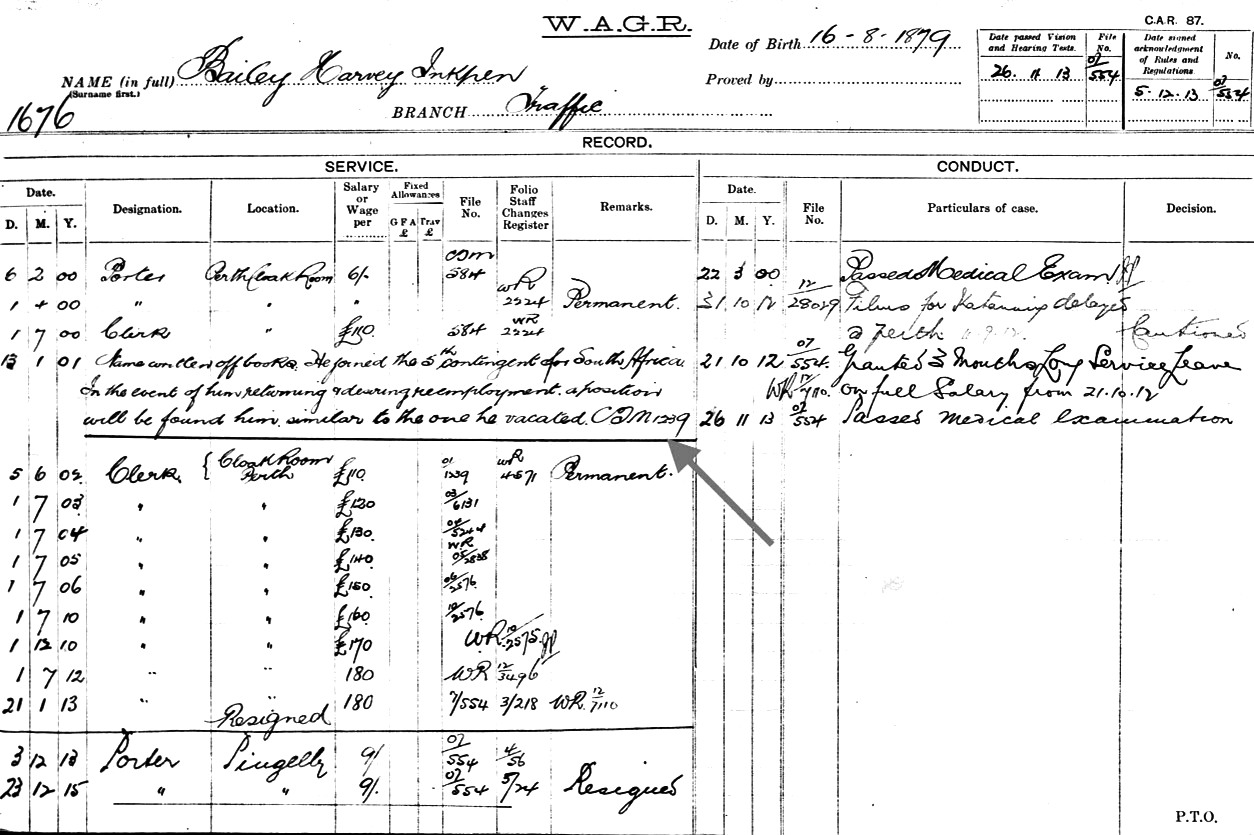 W.A.G.R.
C.A.R. 87.
Date of Birth 16-8-1879
NAME (in full) Bailey Harvey Inkpen
(Surname first.)
Proved by
1676
BRANCH Traffic
Date passed Vision and Hearing Tests. File No. Date signed acknowledgment of Rules and Regulations. No.
26. 11 13 07/554 5-12-13 07/554
RECORD.
SERVICE. CONDUCT.
Date. Designation. Location. Salary or Wage per Fixed Allowances File No. Folio Staff Changes Register Remarks. Date. File No. Particulars of case. Decision.
D. M. Y. G F A £ Trav £ D. M. Y.
6 2 00 Porter Perth Cloak Room 6/- 584 22 3 00 Passed Medical Exam
1 4 00 " " " WR 2224 Permanent. 31 10 12 12/28029 Films for Katanning delayed
1 7 00 Clerk " £110 584 WR 2224 @ Perth Cautioned
13 1 01 Name written off books. He joined the 5th contingent for South Africa. 21 10 12 07/554 Granted 3 Months Long Service Leave
In the event of him returning & desiring reemployment, a position WR 12/7110 on full Salary from 21.10.12
will be found him similar to the one he vacated. 1239 26 11 13 07/554 Passed medical examination
5 6 02 Clerk { Cloak Room Perth £110 01/1239 WR 4571 Permanent.
1 7 03 " " £120 03/6131
1 7 04 " " £130 04/5244
1 7 05 " " £140 WR 05/2838
1 7 06 " " £150 06/2576
1 7 10 " " £160 10/2576
1 12 10 " " £170 WR 10/2575
1 7 12 " " 180 WR 12/3496
21 1 13 " " 180 7/554 3/218 WR. 12/7110
Resigned
3 12 13 Porter Pingelly 9/ 07/554 4/56
23 12 15 " " 9/. 07/554 5/24 Resigned
P.T.O.